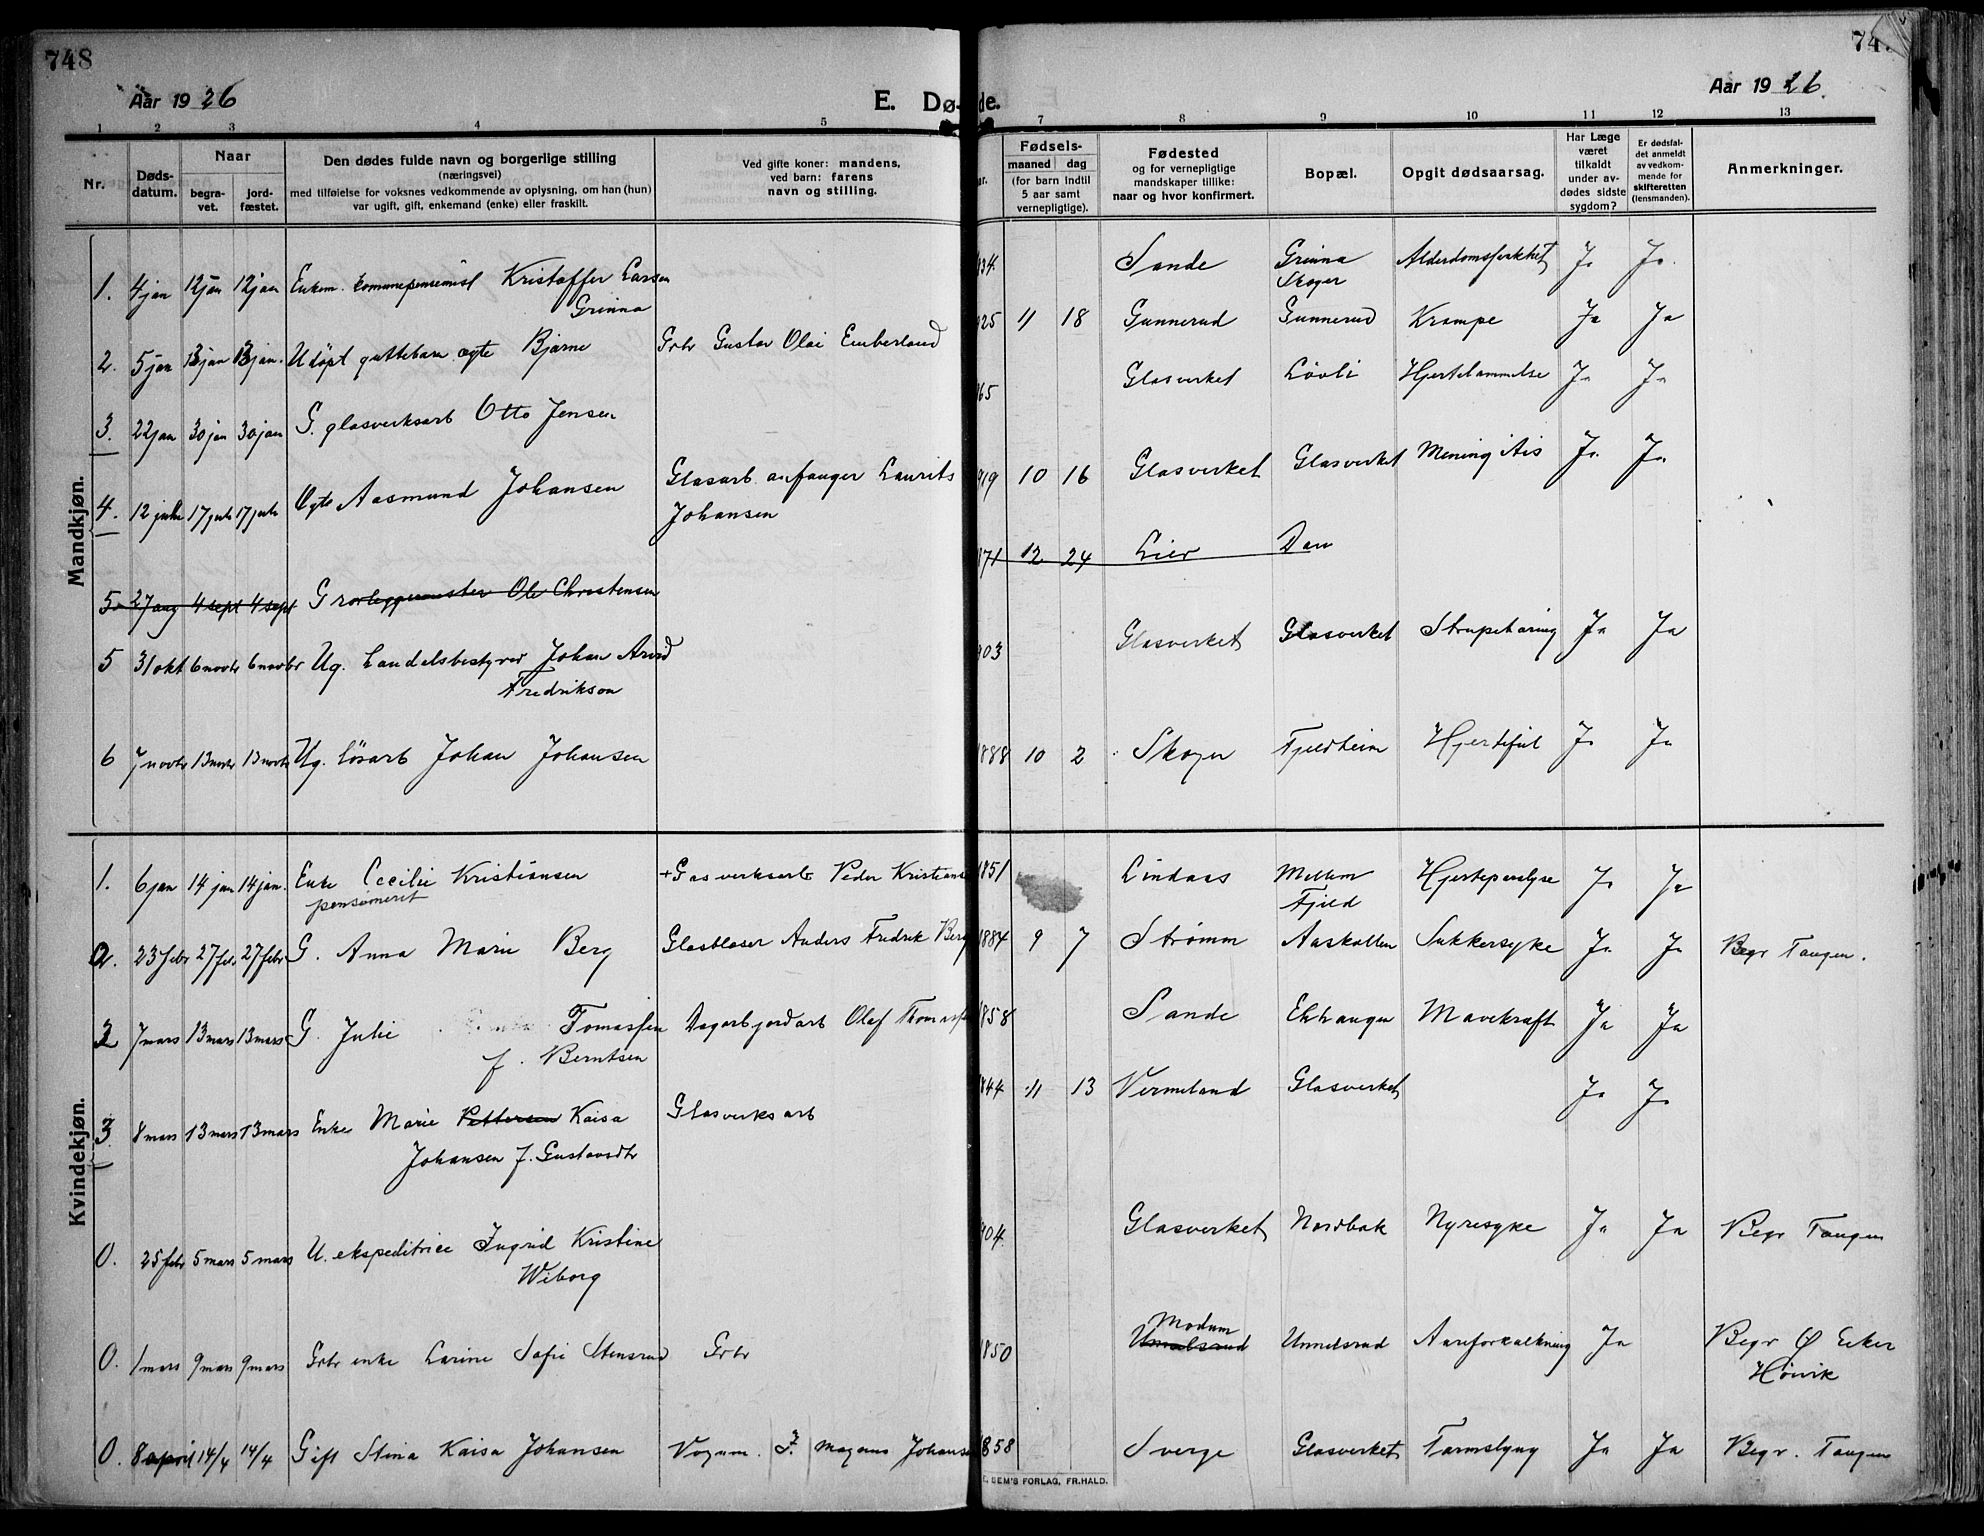 748
Aar 1926
E. Dø-
de.
Aar 1926.
74
1 2 3 4 5 7 8 9 10 11 12 13
Nr.
Døds-
datum.
Naar
begra-
vet.
jord-
fæstet.
Den dødes fulde navn og borgerlige stilling
(næringsvei)
med tilføielse for voksnes vedkommende av oplysning, om han (hun)
var ugift, gift, enkemand (enke) eller fraskilt.
Ved gifte koner: mandens,
ved barn: farens
navn og stilling.
Fødsels-
maaned dag
(for barn indtil
5 aar samt
vernepligtige).
Fødested
og for vernepligtige
mandskaper tillike:
naar og hvor konfirmert.
Bopæl.
Opgit dødsaarsag.
Har Læge
været
tilkaldt
under av-
dødes sidste
sygdom?
Er dødsfal-
det anmeldt
av vedkom-
mende for
skifteretten
(lensmanden).
Anmerkninger.
Mandkjøn.
1. 4 jan 12 jan 12 jan Enkem. kommunepensionist Kristoffer Larsen
Grinna
834. Sande Grinna
Skoger Ja Ja
2. 5 jan 13 jan 13 jan. Udöpt guttebarn ægte Bjarne Grbr Gustav Olai Emberland
925 11 18 Gunnerud Gunnerud Krampe Ja Ja
3. 22 jan 30 jan 30 jan G. glasverksarb Otto Jensen
865 Glasverket Lövli Hjertelammelse Ja Ja
4. 12 17 17 Ægte Aasmund Johansen Glasarb. anfanger Laurits
Johansen
919 10 16 Glasverket Glasverket Meningitis Ja Ja
5. 27 aug 4 sept 4 sept G rörleggermester Ole Christensen
871 12 24 Lier
5 31 okt 6 novbr 6 novbr Ug. handelsbestyrer Johan Arvid
Fredrikson
903 Glasverket Glasverket Strupehoring Ja Ja
6 7 novbr 13 novbr 13 novbr Ug. lösarb Johan Johansen
1888 10 2 Skoger Fjeldheim Hjertefeil Ja Ja
Kvindekjøn.
1. 6 jan 14 jan 14 jan. Enke Cecilie Kristiansen
pensioneret
+ Gasverksarb Peder Kristians
1851 Lindaas Mellem
Fjeld Hjerteparalyse Ja Ja
2. 23 febr 27 feb. 27 febr G. Anna Marie Berg Glasblaser Anders Fredrik Berg
1884 9 7 Strømm Aaskollen Sukkersyke Ja Ja Begr Tangen.
2 7 mars 13 mars 13 mars G. Julie Tomassen
f. Berntsen
Dagarb jordarb Olaf Thomassen
1858 Sande Ekhaugen Mavekræft Ja Ja
3. 8 mars 13 mars 13 mars Enke Marie Pettersen Kaisa
Johansen f. Gustavsdtr
Glasverksarb
844 11 13 Vermeland Glasverket Ja Ja
0. 25 febr 5 mars 5 mars U. ekspeditrice Ingrid Kristine
Wiborg
904. Glasverket Nordbak Nyresyke Ja Ja Begr Tangen
0. 1 mars 9 mars 9 mars Grbr enke Larine Sofie Stensrud Grbr
1850 Modum
Unnelsrud Unnelsrud Aareforkalkning Ja Begr Ø Eker
Høivik
0. 8 april 14/4 14/4 Gift Stina Kaisa Johansen Vognm. Magnus Johanse
1858 Sverge Glasverket Tarmslyng Ja Ja Begr. Tangen
E. SEM'S FORLAG, FR.HALD.